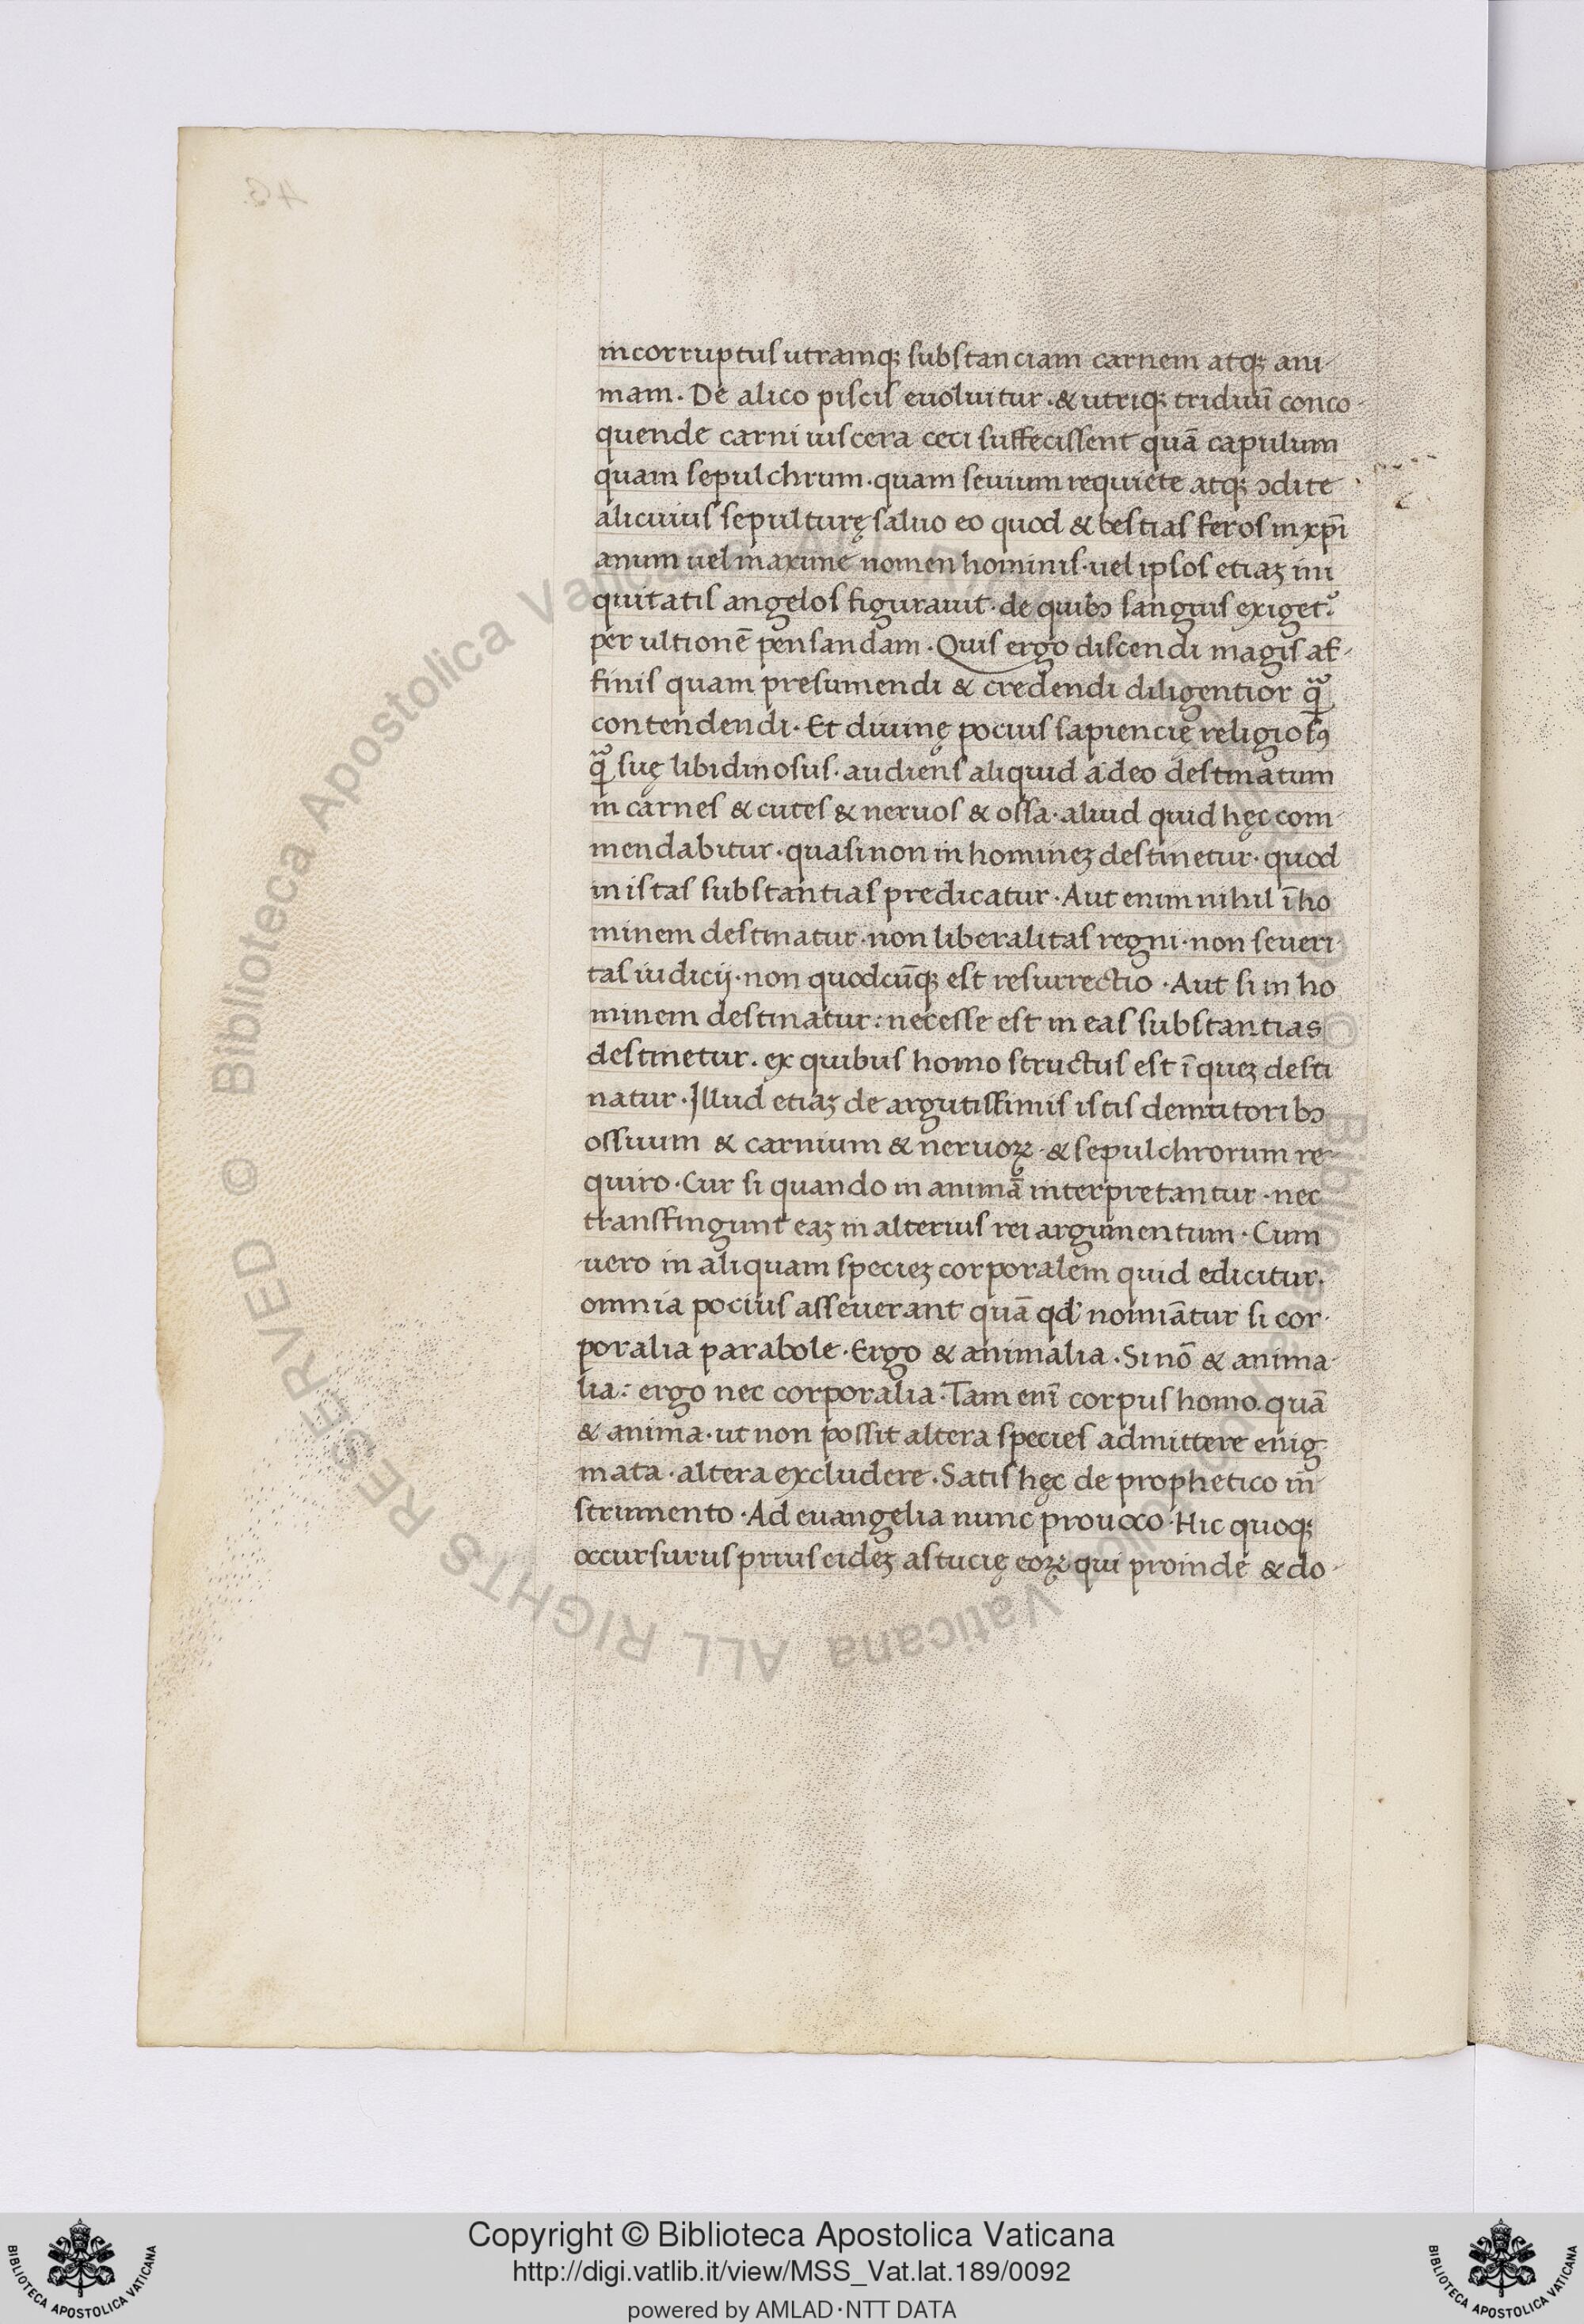 incorruptus utramqꝫ substanciam carnem atqꝫ ani-
mam. De alico piscis euoluitur. & utriqꝫ triduū conco-
quende carni uiscera ceti suffecissent quā capulum
quam sepulchrum. quam seuium requiete atqꝫ ↄdite
alicuius sepulturę saluo eo quod & bestias feros in xp̄i
anum uel maxime nomen hominis. uel ipsos etiaꝫ ini
quitatis angelos figurauit. de quibꝰ sanguis exiget᷑
per ultionē pensandam. Quis ergo discendi magis af-
finis quam presumendi & credendi diligentior q̄ꝫ
contendendi. Et diuinę pocius sapiencie religiosꝰ
q̄ꝫ suę libidinosus. audiens aliquid a deo destinatum
in carnes & cutes & neruos & ossa. aliud quid hęc com-
mendabitur. quasi non in homineꝫ destinetur. quod
in istas substantias predicatur. Aut enim nihil ī ho
minem destinatur. non liberalitas regni. non seueri
tas iudicij. non quodcūqꝫ est resurrectio. Aut si in ho
minem destinatur: necesse est in eas substantias
destinetur. ex quibus homo structus est ī queꝫ desti
natur. Illud etiaꝫ de argutissimis istis demutoribꝰ
ossuum & carnium & neruoꝝ. & sepulchrorum re-
quiro. Cur si quando in animā interpretantur. nec
transfingunt eaꝫ in alterius rei argumentum. Cum
uero in aliquam specieꝫ corporalem quid edicitur.
omnia pocius asseuerant quā qd̄ nomiāatur si cor-
poralia parabole. Ergo & animalia. Si nō & anima-
lia: ergo nec corporalia. Tam enī corpus homo. quā
& anima. ut non possit altera species admittere enig-
mata. altera excludere. Satis hęc de prophetico in
strumento. Ad euangelia nunc prouoco. Hic quoqꝫ
occursurus prius eideꝫ astucię eoꝝ qui proinde & do-
Copyright © Biblioteca Apostolica Vaticana
http://digi.vatlib.it/view/MSS_Vat.lat.189/0092
powered by AMLAD·NTT DATA